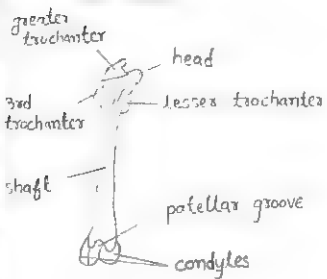 greater
trochanter
head
3rd
trochanter
lesser trochanter
shaft
patellar groove
condyles